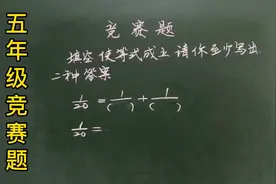 五年级竞赛题
竞赛题
填空使等式成立 请你至少写出
二种答案
1/20 = 1/( ) + 1/( )
1/20 =